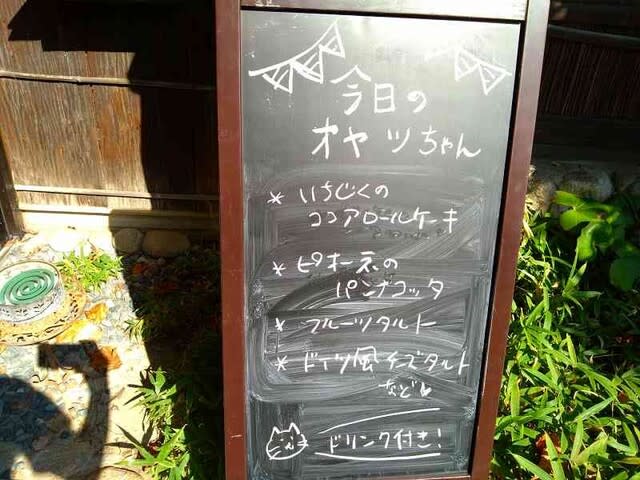 今日の
オヤツちゃん
* いちじくの
ココアロールケーキ
* ピオーネの
パンナコッタ
* フルーツタルト
* ドイツ風チーズタルト
など♥
ドリンク付き!